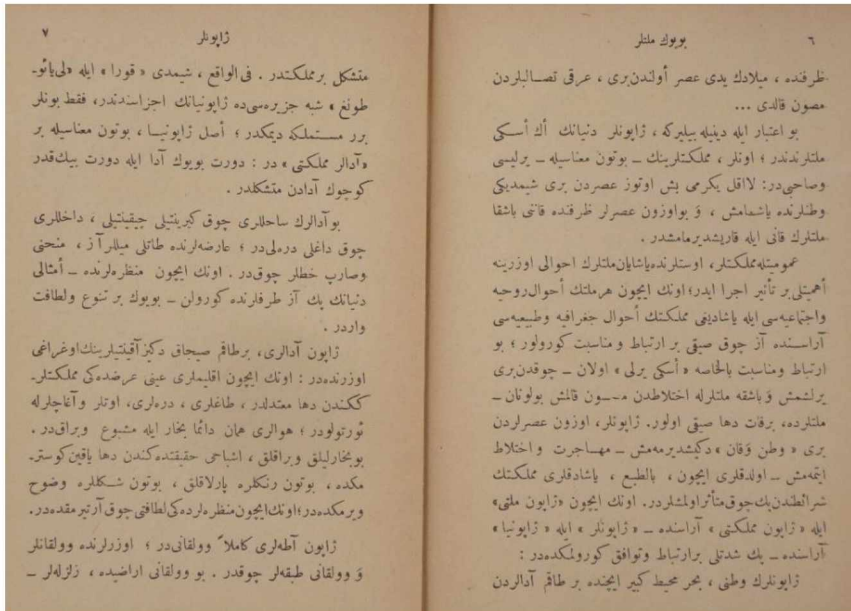 ٦ بويوك ملتلر
ظرفنده ، ميلادك يدى عصر أولندن‌برى ، عرقى تصـالبلردن
مصون قالدى ...
بو اعتبار ايله دينيله بيليركه ، ژاپونلر دنيانك أڭ أسكى
ملتلرندندر ؛ اونلر ، مملكتلرينك ــ بوتون معناسيله ــ يرليسى
وصاحبى‌در : لااقل يكرمى بش اوتوز عصردن برى شيمديكى
وطنلرنده ياشامش ، وَ بواوزون عصرلر ظرفنده قاننى باشقا
ملتلرك قانى ايله قاريشديرمامشدر .
عموميتله‌مملكتلر، اوستلرنده‌ياشايان‌ملتلرك احوالى اوزرينه
أهميتلى بر تأثير اجرا ايدر؛ اونك ايچون هرملتك أحوال‌روحيه
واجتماعيه‌سى ايله ياشاديغى مملكتك أحوال جغرافيه وطبيعيه‌سى
آراسـنده آز چوق صيقى بر ارتباط و مناسبت كورولور ؛ بو
ارتباط ومناسبت بالخاصه « أسكى يرلى » اولان ــ چوقدن‌برى
يرلشمش وَ باشقه ملتلرله اختلاطدن مصـون قالمش بولونان ــ
ملتلرده، برقات دها صيقى اولور. ژاپونلر، اوزون عصرلردن
برى « وطن وَقان » دكيشديرمه‌مش ــ مهـاجرت و اختلاط
ايتمه‌مش ــ اولدقلرى ايچون ، بالطبع ، ياشادقلرى مملكتك
شرائطندن‌پك‌چوق‌متأثراولمشلردر. اونك ايچون «ژاپون ملتى»
ايله « ژاپون مملكتى » آراسنده ــ « ژاپونلر » ايله « ژاپونيا »
آراسنده ــ پك شدتلى برارتباط وتوافق كورولمكده‌در :
ژاپونلرك وطنى ، بحر محيط كبير ايچنده بر طاقم آدالردن
ژاپونلر ٧
متشكل برمملكتدر . فى‌الواقع ، شيمدى « قورا » ايله «لى‌يائو-
طونغ » شبه جزيره‌سى‌ده ژاپونيانك اجزاسندندر، فقط بونلر
برر مسـتملكه ديمكدر ؛ أصل ژاپونيـا ، بوتون معناسيله بر
«آدالر مملكتى » در : دورت بويوك آدا ايله دورت بيك‌قدر
كوچوك آدادن متشكلدر .
بوآدالرك ساحللرى چوق كيرينتيلى چيقينتيلى ، داخللرى
چوق داغلى دره‌لى‌در ؛ عارضه‌لرنده طاتلى ميللر آز ، منحنى
وصارپ خطلر چوق‌در . اونك ايچون منظره‌لرنده ــ أمثالى
دنيانك پك آز طرفلرنده كورولن ــ بويوك بر تنوع ولطافت
واردر .
ژاپون آدالرى، برطاقم صيجاق دكيزآقينتيلرينك‌اوغراغى
اوزرنده‌در : اونك ايچون اقليملرى عينى عرضده‌كى مملكتلر-
ككندن دها معتدلدر ، طاغلرى ، دره‌لرى، اوتلر وآغاچلرله
ئورتولودر ؛ هوالرى همان دائما بخار ايله مشبوع وبراق‌در .
بوبخارليلق وبراقلق ، اشباحى حقيقتده‌كندن دها ياقين‌كوستر-
مكده ، بوتون رنكلره پارلاقلق ، بوتون شـكللره وضوح
ويرمكده‌در؛اونك‌ايچون‌منظره‌لرده‌كى‌لطافتى چوق آرتيرمقده‌در.
ژاپون آطه‌لرى كاملاً وولقانى‌در ؛ اوزرلرنده وولقانلر
وَ وولقانى طبقه‌لر چوقدر . بو وولقانى اراضيده ، زلزله‌لر ــ